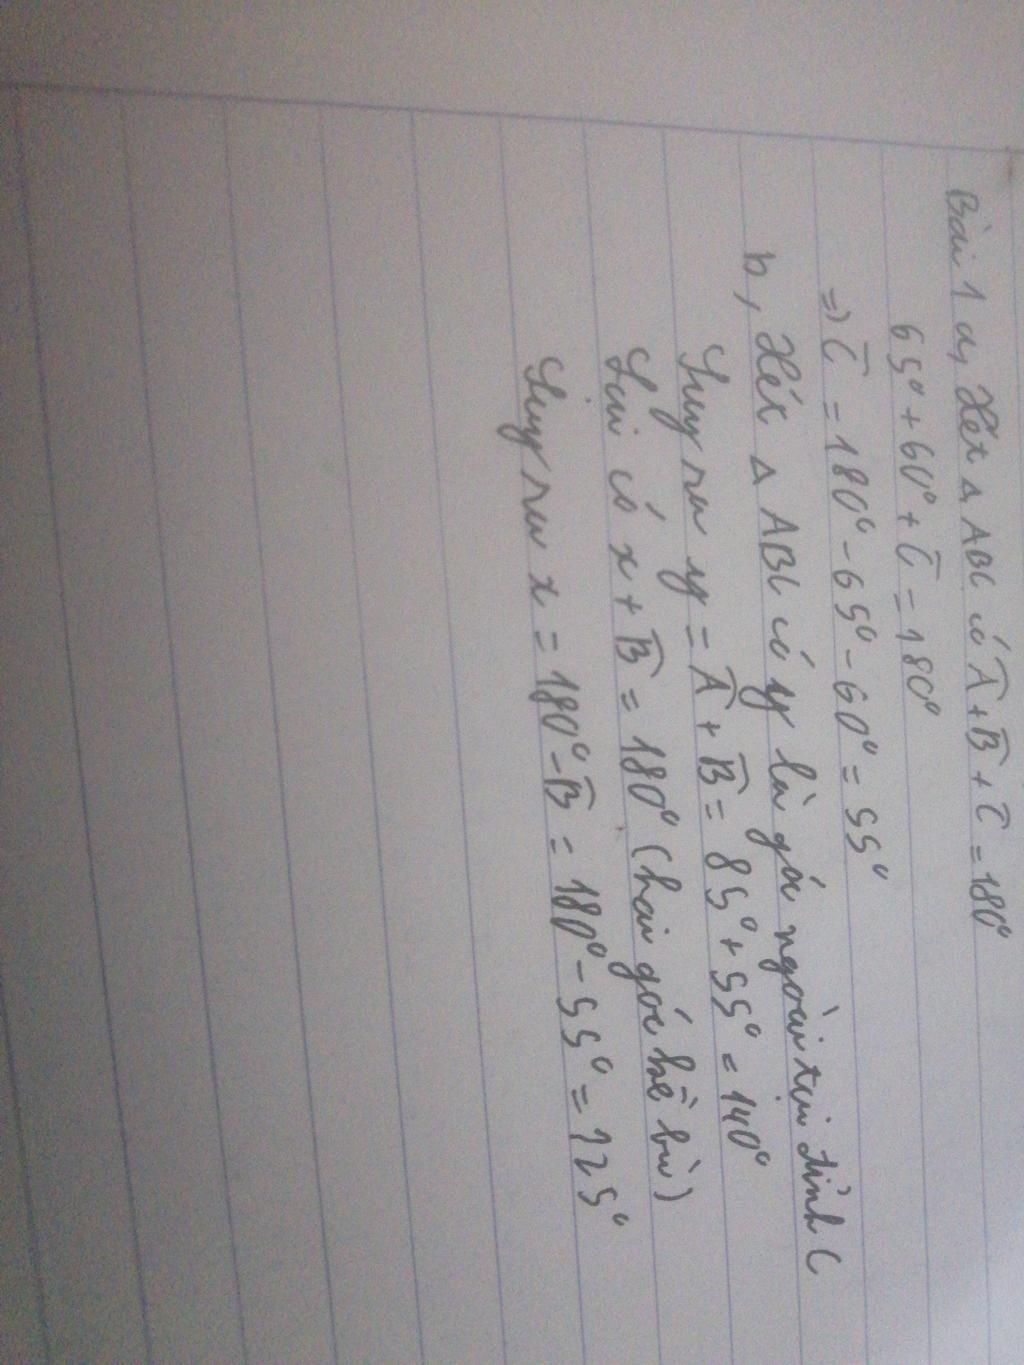 Bài 1 a, Xét Δ ABC có Â + B̂ + Ĉ = 180°
65° + 60° + Ĉ = 180°
=> Ĉ = 180° - 65° - 60° = 55°
b, Xét Δ ABC có y là góc ngoài tại đỉnh C
Suy ra y = Â + B̂ = 85° + 55° = 140°
Lại có x + B̂ = 180° (hai góc kề bù)
Suy ra x = 180° - B̂ = 180° - 55° = 125°